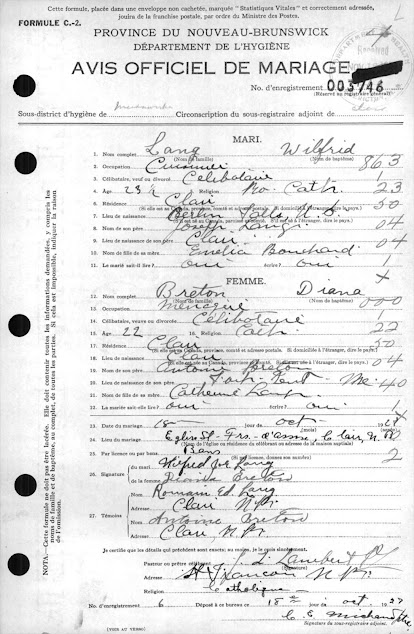 Cette formule, placée dans une enveloppe non cachetée, marquée "Statistiques Vitales" et correctement adressée,
jouira de la franchise postale, par ordre du Ministre des Postes.
FORMULE C.-2.
PROVINCE DU NOUVEAU-BRUNSWICK
DÉPARTEMENT DE L'HYGIÈNE
AVIS OFFICIEL DE MARIAGE
Received
No. d'enregistrement 003746
(Réservé au registraire général)
Sous-district d'hygiène de Circonscription du sous-registraire adjoint de
MARI.
1. Nom complet Lang Wilfrid
(Nom de famille) (Nom de baptême)
2. Occupation 863
3. Célibataire, veuf ou divorcé Célibataire 1
4. Age 23 Religion Ro. Cath. 23
6. Résidence Clair 50
(Si elle est au Canada, province, comté et adresse postale. Si domicilié à l'étranger, dire le pays.)
7. Lieu de naissance Berlin Falls N. H.
8. Nom de son père Joseph Lang 04
9. Lieu de naissance de son père Clair 04
10. Nom de fille de sa mère Emelia Bouchard 0
11. Le marié sait-il lire? oui écrire? oui 1
FEMME.
12. Nom complet Breton Diana
(Nom de famille) (Nom de baptême)
13. Occupation Ménagère 000
14. Célibataire, veuve ou divorcée Célibataire 1
15. Age 22 16. Religion Cath. 22
17. Résidence Clair 50
18. Lieu de naissance Clair 04
19. Nom de son père Antoine Breton
20. Lieu de naissance de son père Fort Kent Me. 40
21. Nom de fille de sa mère Catherine
22. La mariée sait-elle lire? oui écrire? oui 1
23. Date du mariage 18 oct
24. Lieu du mariage Eglise St Frs. d'assise Clair, N. B.
(Nom de l'église ou résidence du célébrant)
25. Par licence ou par bans Bans 2
26. Signature Wilfred Jos Lang
Breton
27. Témoins Romain Ed. Lang
Clair N.B.
Antoine Breton
Clair N.B.
Je certifie que les détails qui précèdent sont exacts; au mieux de
Pasteur ou prêtre J. L. Lambert
Adresse St François N.B.
Catholique
No. d'enregistrement 6 Déposé à ce bureau ce 18 oct 1937
C. E. Michaud
Signature du sous-registraire adjoint.
(VOIR AU VERSO)
NOTA:—Cette formule ne doit pas être lacérée. Elle doit contenir toutes les informations demandées, y compris les
noms de famille et de baptême, au complet, de toutes les parties. Si cela est impossible, indiquer la raison
de l'omission.